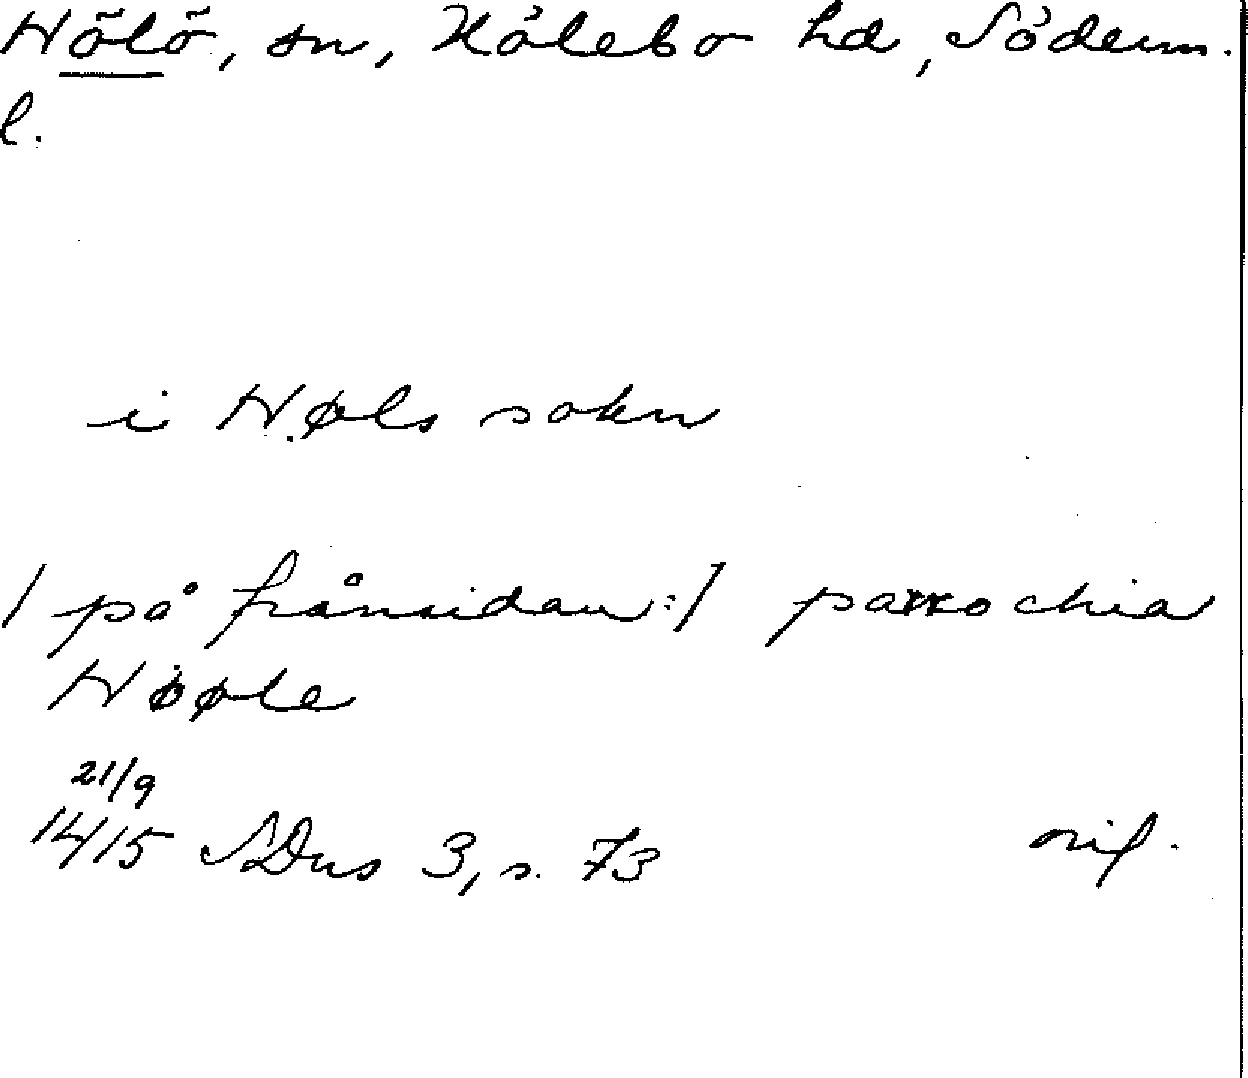 Hölö, sn, Hölebo hd, Söderm.
l.
i Høls sokn
/ på frånsidan :/ parrochia
Høøle
21/9
1415 SDns 3, s. 73 orig.